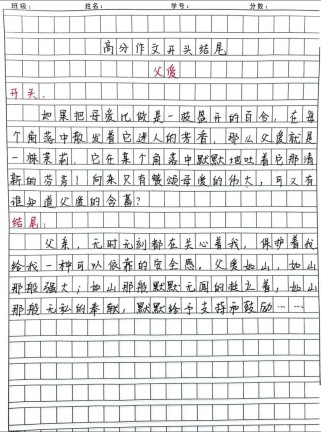 班级： 姓名： 学号： 分数：
高分作文开头结尾
父爱
开头：
如果把母爱比做是一朵盛开的百合，在每
个角落中散发着它迷人的芳香，那么父爱就是
一株茉莉，它在某个角落中默默地吐着它那清
新的芬芳！向来只有赞颂母爱的伟大，可又有
谁知道父爱的含蓄？
结尾：
父亲，无时无刻都在关心着我，保护着我
给我一种可以依靠的安全感，父爱如山，如山
那般强大；如山那般默默无闻的挂立着，如山
那般无私的奉献，默默给予支持和鼓励……